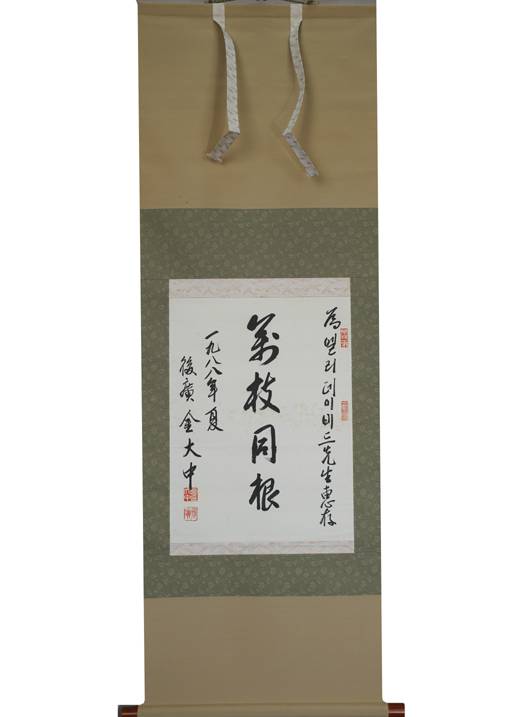 為 데이비드先生惠存
萬枝同根
一九八八年 夏
後廣 金大中